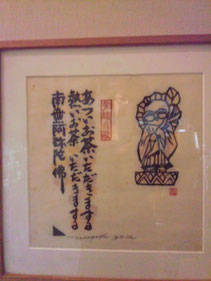 あつい お茶 いただきまする
熱い お茶 いただきまする
南無阿弥陀佛